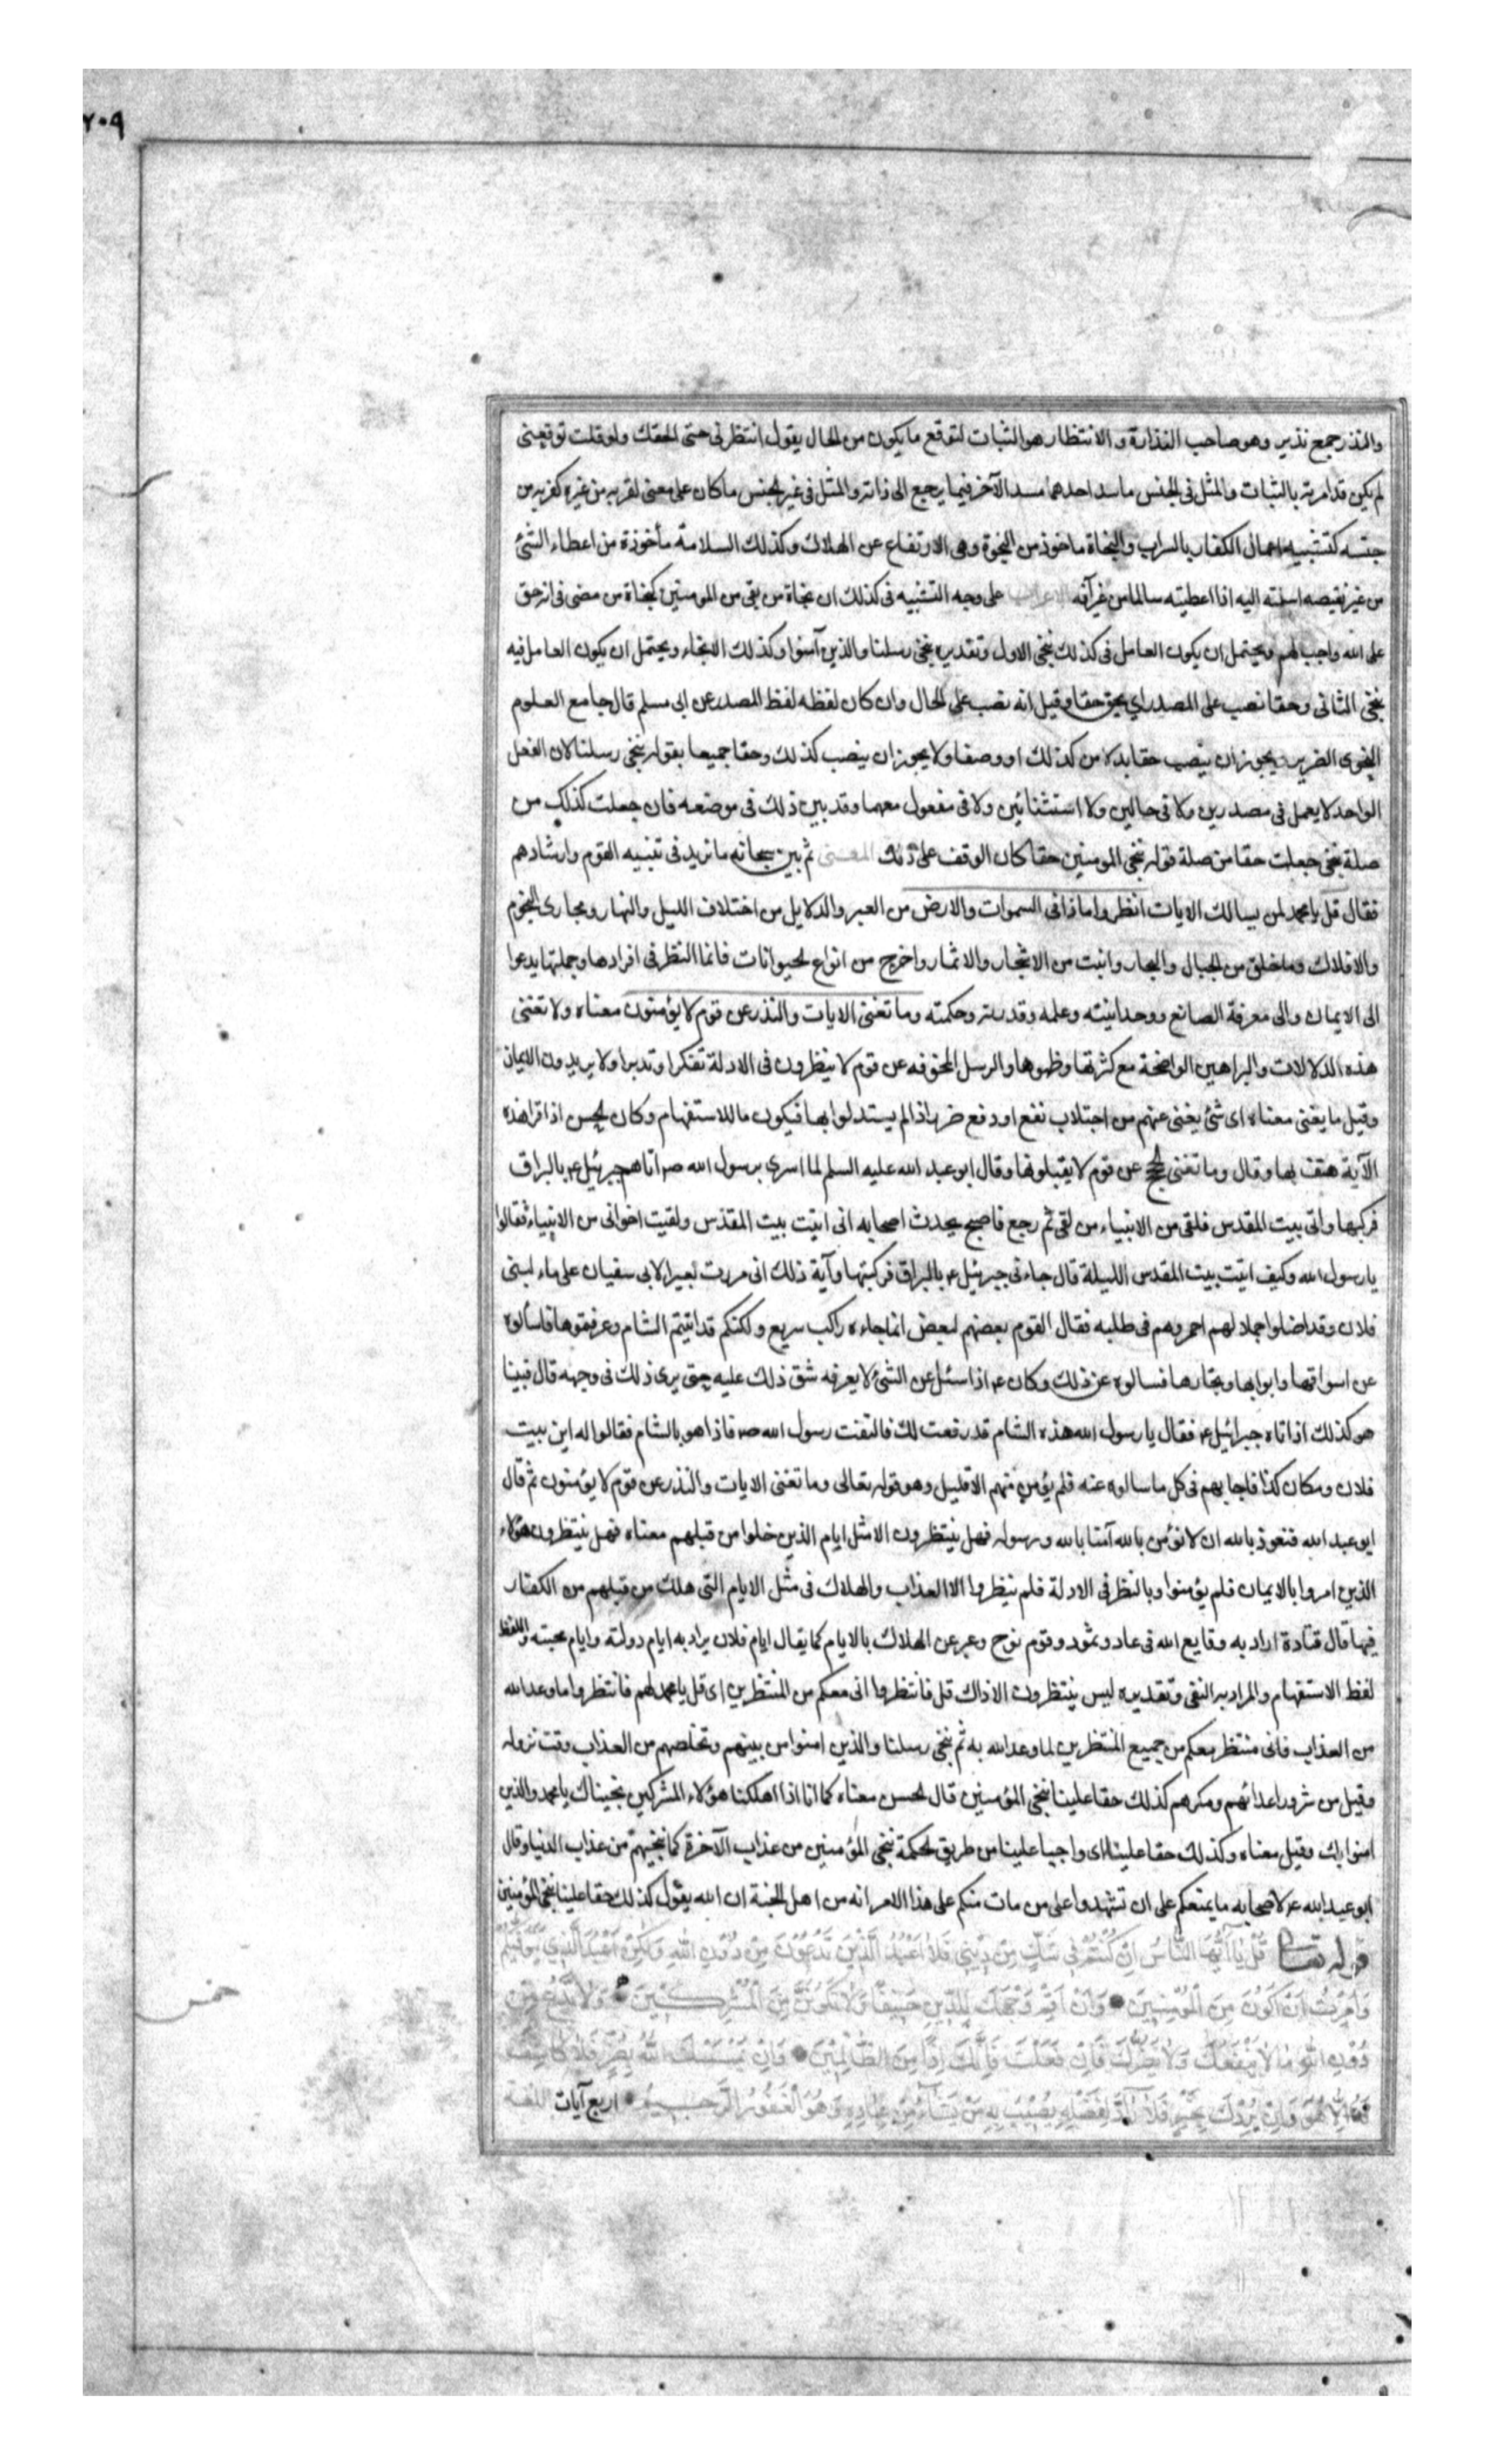 ٢٠٩
والنذر جمع نذير وهو صاحب النذارة و الانتظار هو الثبات لتوقع ما يكون من الحال يقول انتظرنى حتى الحقك ولو قلت توقعنى
لم يكن قد امرته بالثبات والمثل فى الجنس ما سد احدهما مسد الآخر فيما يرجع الى ذاته والمثل فى غير الجنس ما كان على معنى لقربه من غيره كقربه من
جنسه كتشبيه اعمال الكفار بالسراب والنجاة ماخوذ من النجوة وهى الارتفاع عن الهلاك وكذلك السلامة مأخوذة من اعطاء الشئ
من غير نقيصه اسلمته اليه اذا اعطيته سالما من غير آفة الاعراب على وجه التشبيه فى كذلك ان نجاة من بقى من المومنين كنجاة من مضى فى انه حق
على الله واجب لهم ويحتمل ان يكون العامل فى كذلك ننجى الاول وتقديره ننجى رسلنا والذين آمنوا كذلك الانجاء ويحتمل ان يكون العامل فيه
ننجى الثانى وحقا نصب على المصدر اي يحق حقا وقيل انه نصب على الحال وان كان لفظه لفظ المصدر عن ابى مسلم قال جامع العلوم
النحوى الضرير يجوز ان ينصب حقا بدلا من كذلك او وصفا ولا يجوز ان ينصب كذلك وحقا جميعا بقوله ننجى رسلنا لان الفعل
الواحد لا يعمل فى مصدرين ولا فى حالين ولا استثنائين ولا فى مفعول معهما وقد بين ذلك فى موضعه فان جعلت كذلك من
صلة ننجى جعلت حقا من صلة قوله ننجى المومنين حقا كان الوقف على ذلك المعنى ثم بين سبحانه ما نزيد فى تنبيه القوم وارشادهم
فقال قل يا محمد لمن يسالك الايات انظروا ماذا فى السموات والارض من العبر والدلايل من اختلاف الليل والنهار ومجارى النجوم
والافلاك وما خلق من الجبال والبحار وانبت من الاشجار والاثمار واخرج من انواع الحيوانات فانما النظر فى افرادها وجملتها يدعوا
الى الايمان والى معرفة الصانع ووحدانيته وعلمه وقدرته وحكمته وما تغنى الايات والنذر عن قوم لا يؤمنون معناه ولا تغنى
هذه الدلالات والبراهين الواضحة مع كثرتها وظهوها والرسل المخوفه عن قوم لا ينظرون فى الادلة تفكرا وتدبرا ولا يريدون الايمان
وقيل ما يغنى معناه اى شئ يغنى عنهم من اجتلاب نفع او دفع ضر اذا لم يستدلوا بها فيكون ما للاستفهام وكان الحسن اذا قرا هذه
الآية هتف بها وقال وما تغنى الحجج عن قوم لا يقبلونها وقال ابو عبد الله عليه السلم لما اسرى برسول الله ص اتاهم جبرئيل ع بالبراق
فركبها واتى بيت المقدس فلقى من الانبياء من لقى ثم رجع فاصبح يحدث اصحابه انى اتيت بيت المقدس ولقيت اخوانى من الانبياء فقالوا
يا رسول الله وكيف اتيت بيت المقدس الليلة قال جاءنى جبرئيل ع بالبراق فركبتها وآية ذلك انى مررت بعير لابى سفيان على ماء لبنى
فلان وقد اضلوا جملا لهم احمر وهم فى طلبه فقال القوم بعضهم لبعض انما جاءه راكب سريع ولكنكم قد اتيتم الشام وعرفتموها فاسألوه
عن اسواقها وابوابها وتجارها فسالوه عن ذلك وكان ع اذا سئل عن الشئ لا يعرفه شق ذلك عليه حتى يرى ذلك فى وجهه قال فبينا
هو كذلك اذ اتاه جبرائيل ع فقال يا رسول الله هذه الشام قد رفعت لك فالتفت رسول الله ص فاذا هو بالشام فقالوا له اين بيت
فلان ومكان كذا فاجابهم فى كل ما سالوه عنه فلم يؤمن منهم الا قليل وهو قوله تعالى وما تغنى الايات والنذر عن قوم لا يؤمنون ثم قال
ابو عبد الله فنعوذ بالله ان لا نؤمن بالله آمنا بالله ورسوله فهل ينتظرون الا مثل ايام الذين خلوا من قبلهم معناه فهل ينتظرون هؤلاء
الذين امروا بالايمان فلم يؤمنوا وبالنظر فى الادلة فلم ينظروا الا العذاب والهلاك فى مثل الايام التى هلك من قبلهم من الكفار
فيها قال قتادة اراد به وقايع الله فى عاد وثمود وقوم نوح وعبر عن الهلاك بالايام كما يقال ايام فلان يراد به ايام دولته وايام محنته واللفظ
لفظ الاستفهام والمراد به النفى وتقديره ليس ينتظرون الا ذاك قل فانتظروا انى معكم من المنتظرين اى قل يا محمد لهم فانتظروا ما وعد الله
من العذاب فانى منتظر معكم من جميع المنتظرين لما وعد الله به ثم ننجى رسلنا والذين امنوا من بينهم ونخلصهم من العذاب وقت نزوله
وقيل من شرور اعدائهم ومكرهم كذلك حقا علينا ننجى المؤمنين قال الحسن معناه كما انا اذا اهلكنا هؤلاء المشركين نجيناك يا محمد والذين
امنوا بك وقيل معناه وكذلك حقا علينا اى واجبا علينا من طريق الحكمة ننجى المؤمنين من عذاب الآخرة كما ننجيهم من عذاب الدنيا وقال
ابو عبد الله ع لاصحابه ما يمنعكم على ان تشهدوا على من مات منكم على هذا الامر انه من اهل الجنة ان الله يقول كذلك حقا علينا ننجى المؤمنين
قوله تعالى قُلْ يَا أَيُّهَا النَّاسُ إِنْ كُنْتُمْ فِي شَكٍّ مِنْ دِينِي فَلَا أَعْبُدُ الَّذِينَ تَدْعُونَ مِنْ دُونِ اللهِ وَلَكِنْ أَعْبُدُ اللهَ الَّذِي يَتَوَفَّيكُمْ
وَأُمِرْتُ أَنْ أَكُونَ مِنَ الْمُؤْمِنِينَ وَأَنْ أَقِمْ وَجْهَكَ لِلدِّينِ حَنِيفًا وَلَا تَكُونَنَّ مِنَ الْمُشْرِكِينَ وَلَا تَدْعُ مِنْ
دُونِ اللهِ مَا لَا يَنْفَعُكَ وَلَا يَضُرُّكَ فَإِنْ فَعَلْتَ فَإِنَّكَ إِذًا مِنَ الظَّالِمِينَ وَإِنْ يَمْسَسْكَ اللهُ بِضُرٍّ فَلَا كَاشِفَ
لَهُ إِلَّا هُوَ وَإِنْ يُرِدْكَ بِخَيْرٍ فَلَا رَادَّ لِفَضْلِهِ يُصِيبُ بِهِ مَنْ يَشَاءُ مِنْ عِبَادِهِ وَهُوَ الْغَفُورُ الرَّحِيمُ اربع آيات اللغة
خمس